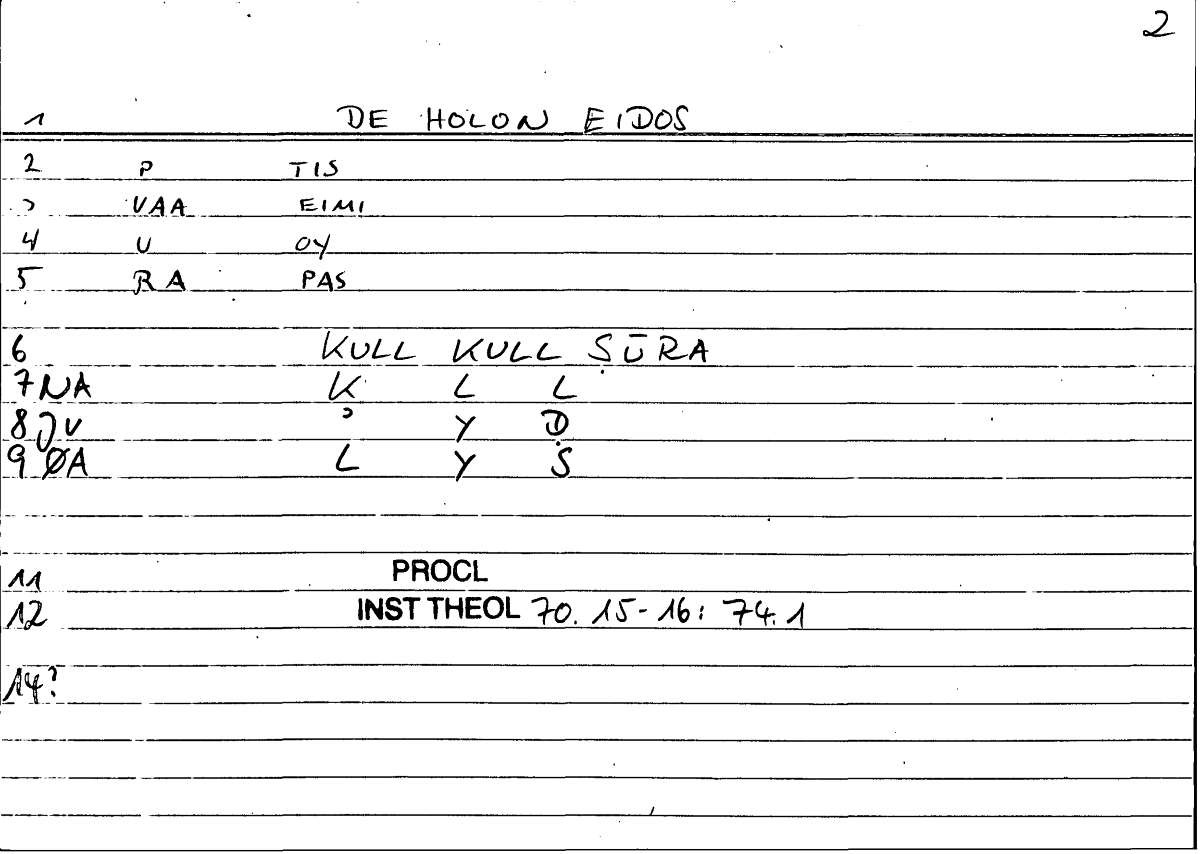 2
1 DE HOLON EIDOS
2 P TIS
3 VAA EIMI
4 U OY
5 RA PAS
6 KULL KULL ṢŪRA
7 NA K L L
8 JV ʾ Y Ḍ
9 ØA L Y Ṣ
11 PROCL
12 INST THEOL 70. 15-16: 74.1
14?